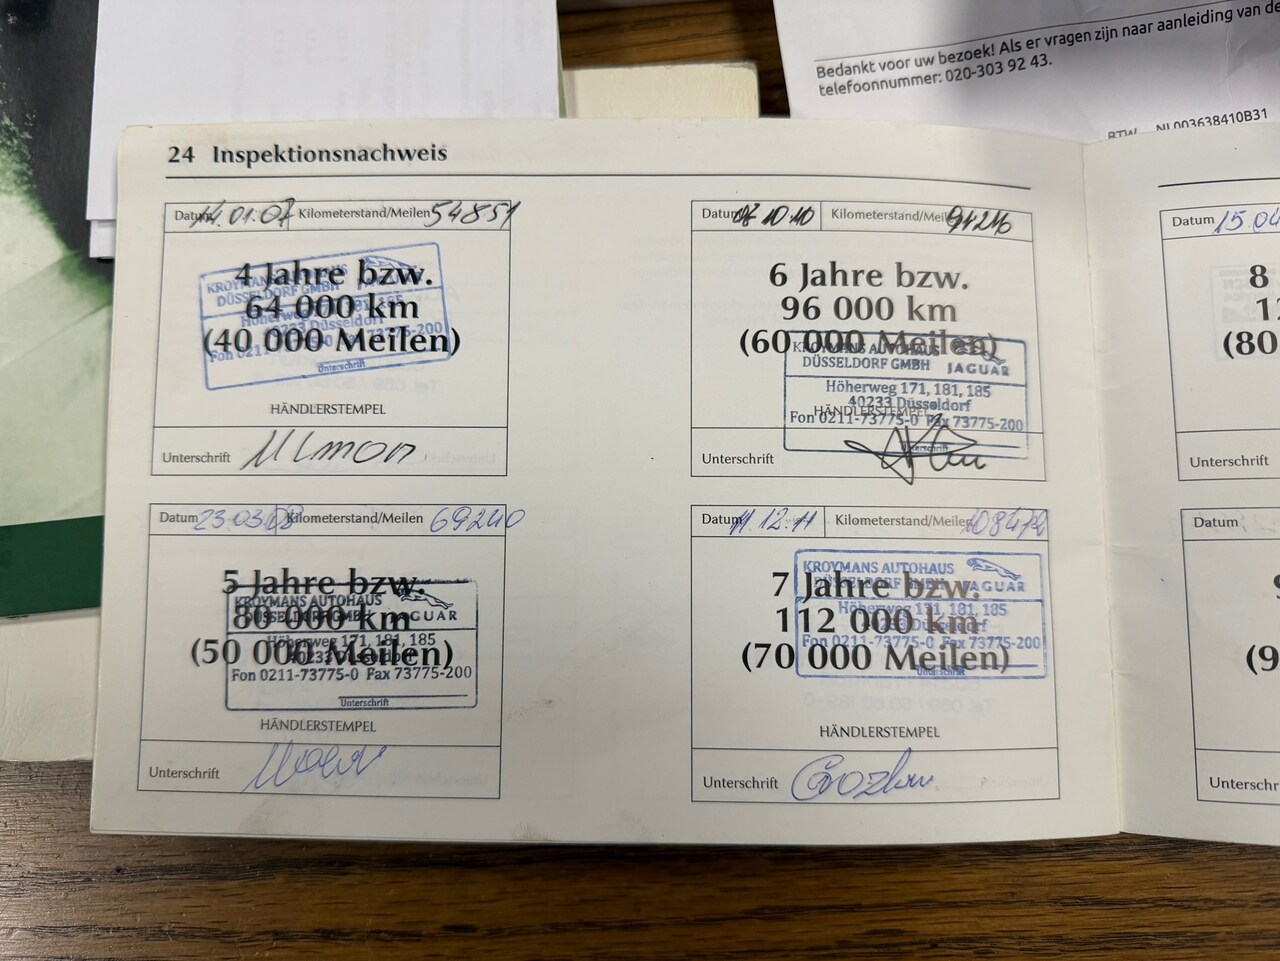 Bedankt voor uw bezoek! Als er vragen zijn naar aanleiding van de
telefoonnummer: 020-303 92 43.
BTW NL003638410B31
24 Inspektionsnachweis
Datum 14.01.07 Kilometerstand/Meilen 54851
4 Jahre bzw.
64 000 km
(40 000 Meilen)
KROYMANS AUTOHAUS
DÜSSELDORF GMBH JAGUAR
Höherweg 171, 181, 185
40233 Düsseldorf
Fon 0211-73775-0 Fax 73775-200
Unterschrift
HÄNDLERSTEMPEL
Unterschrift
Datum 23.03.08 Kilometerstand/Meilen 69240
5 Jahre bzw.
80 000 km
(50 000 Meilen)
KROYMANS AUTOHAUS
DÜSSELDORF GMBH JAGUAR
Höherweg 171, 181, 185
40233 Düsseldorf
Fon 0211-73775-0 Fax 73775-200
Unterschrift
HÄNDLERSTEMPEL
Unterschrift
Datum 10.10 Kilometerstand/Meilen
6 Jahre bzw.
96 000 km
(60 000 Meilen)
KROYMANS AUTOHAUS
DÜSSELDORF GMBH JAGUAR
Höherweg 171, 181, 185
40233 Düsseldorf
Fon 0211-73775-0 Fax 73775-200
Unterschrift
HÄNDLERSTEMPEL
Unterschrift
Datum 11.12.11 Kilometerstand/Meilen
7 Jahre bzw.
112 000 km
(70 000 Meilen)
KROYMANS AUTOHAUS
DÜSSELDORF GMBH JAGUAR
Höherweg 171, 181, 185
40233 Düsseldorf
Fon 0211-73775-0 Fax 73775-200
Unterschrift
HÄNDLERSTEMPEL
Unterschrift
Datum 15.04
8
(80
Unterschrift
Datum
(9
Unterschr